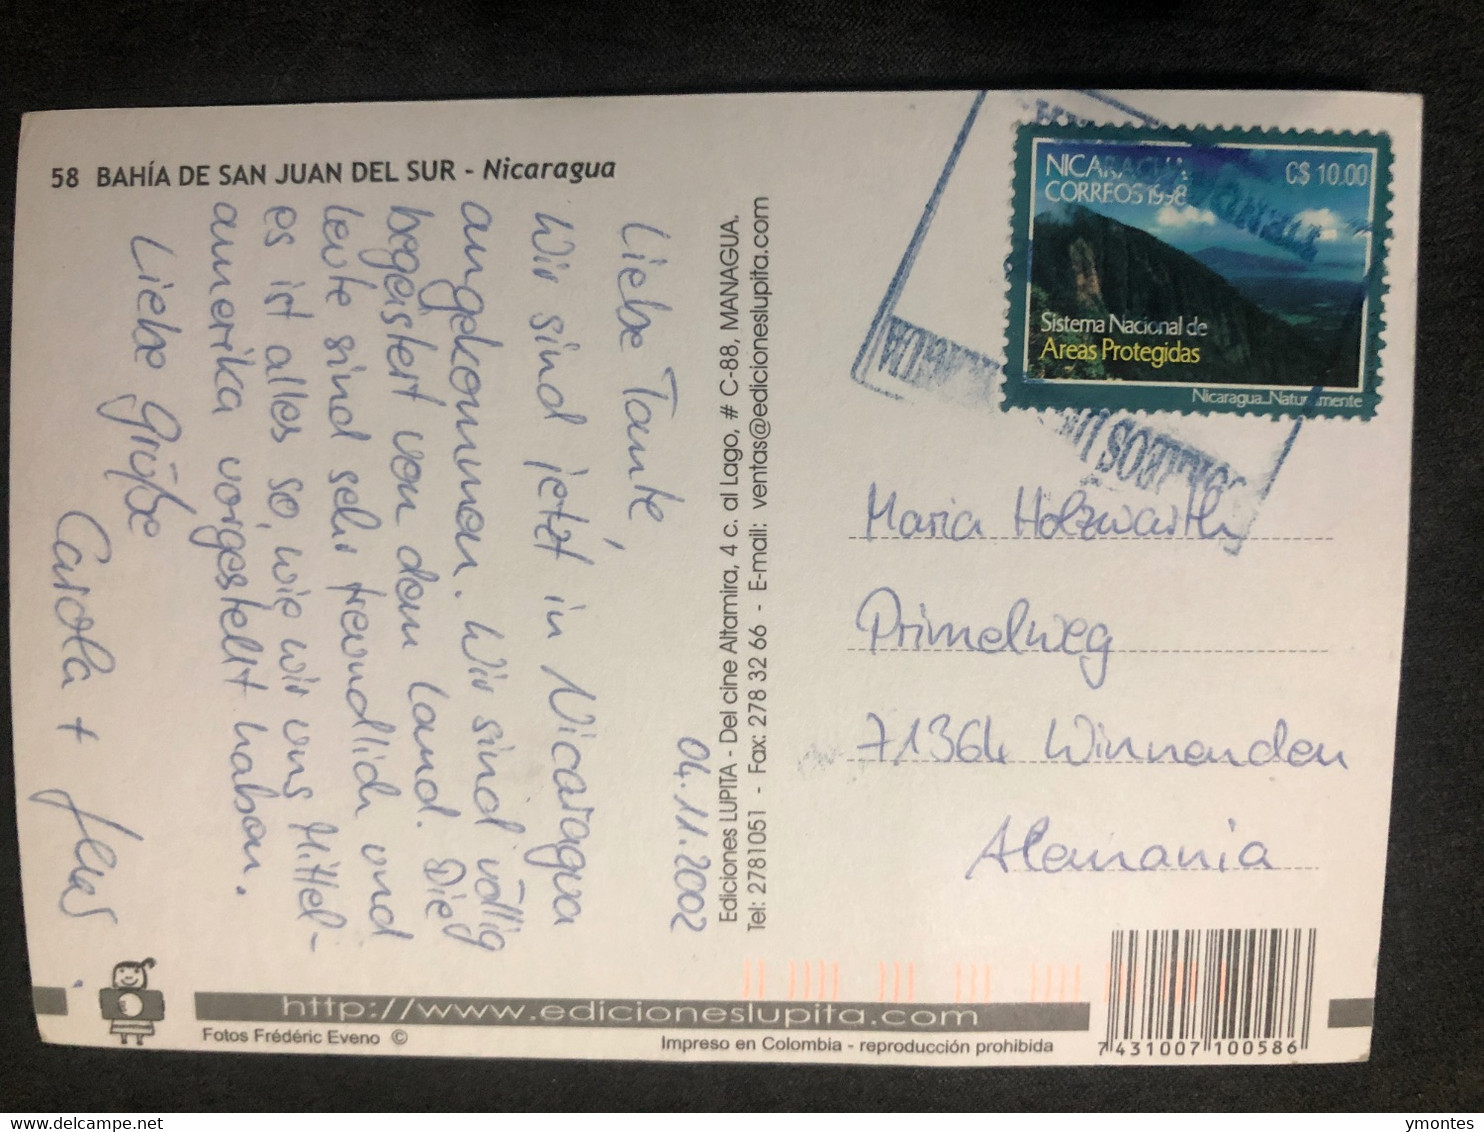 58 BAHÍA DE SAN JUAN DEL SUR - Nicaragua
04.11.2002
Liebe Tante,
Wir sind jetzt in Nicaragua
angekommen. Wir sind völlig
begeistert von dem Land. Die
Leute sind sehr freundlich und
es ist alles so, wie wir uns Mittel-
amerika vorgestellt haben.
Liebe Grüße
Carola + Jens
Ediciones LUPITA - Del cine Altamira, 4 c. al Lago, # C-88, MANAGUA.
Tel: 2781051 - Fax: 278 32 66 - E-mail: ventas@edicioneslupita.com
NICARAGUA C$ 10.00
CORREOS 1998
Sistema Nacional de
Areas Protegidas
Nicaragua...Naturalmente
Maria Holzwarth
Primelweg
71364 Winnenden
Alemania
http://www.edicioneslupita.com
Fotos Frédéric Eveno ©
Impreso en Colombia - reproducción prohibida
7 431007 100586
delcampe.net
ymontes